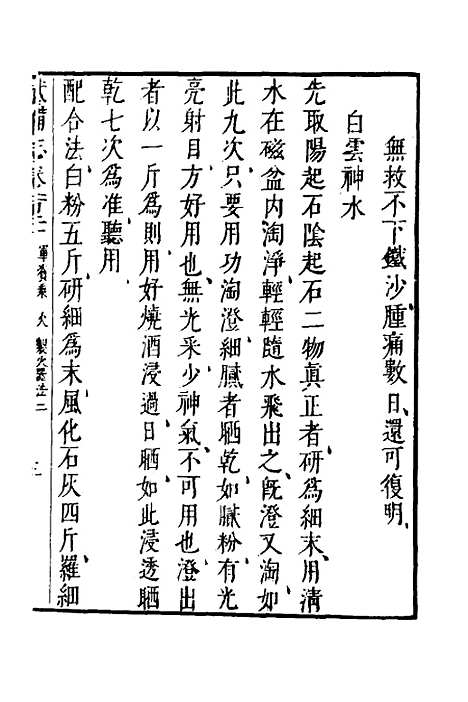 無救不下鐵沙腫痛數日還可復明
白雲神水
先取陽起石陰起石二物真正者研爲細末用清
水在磁盆内淘淨輕輕隨水飛出之旣澄又淘如
此九次只要用功淘澄細膩者晒乾如膩粉有光
亮射目方好用也無光采少神氣不可用也澄出
者以一斤爲則用好燒酒浸過日晒如此浸透晒
乾七次爲准聽用
配合法白粉五斤研細爲末風化石灰四斤羅細
武備志卷百二 軍資乘 火 製火器法二